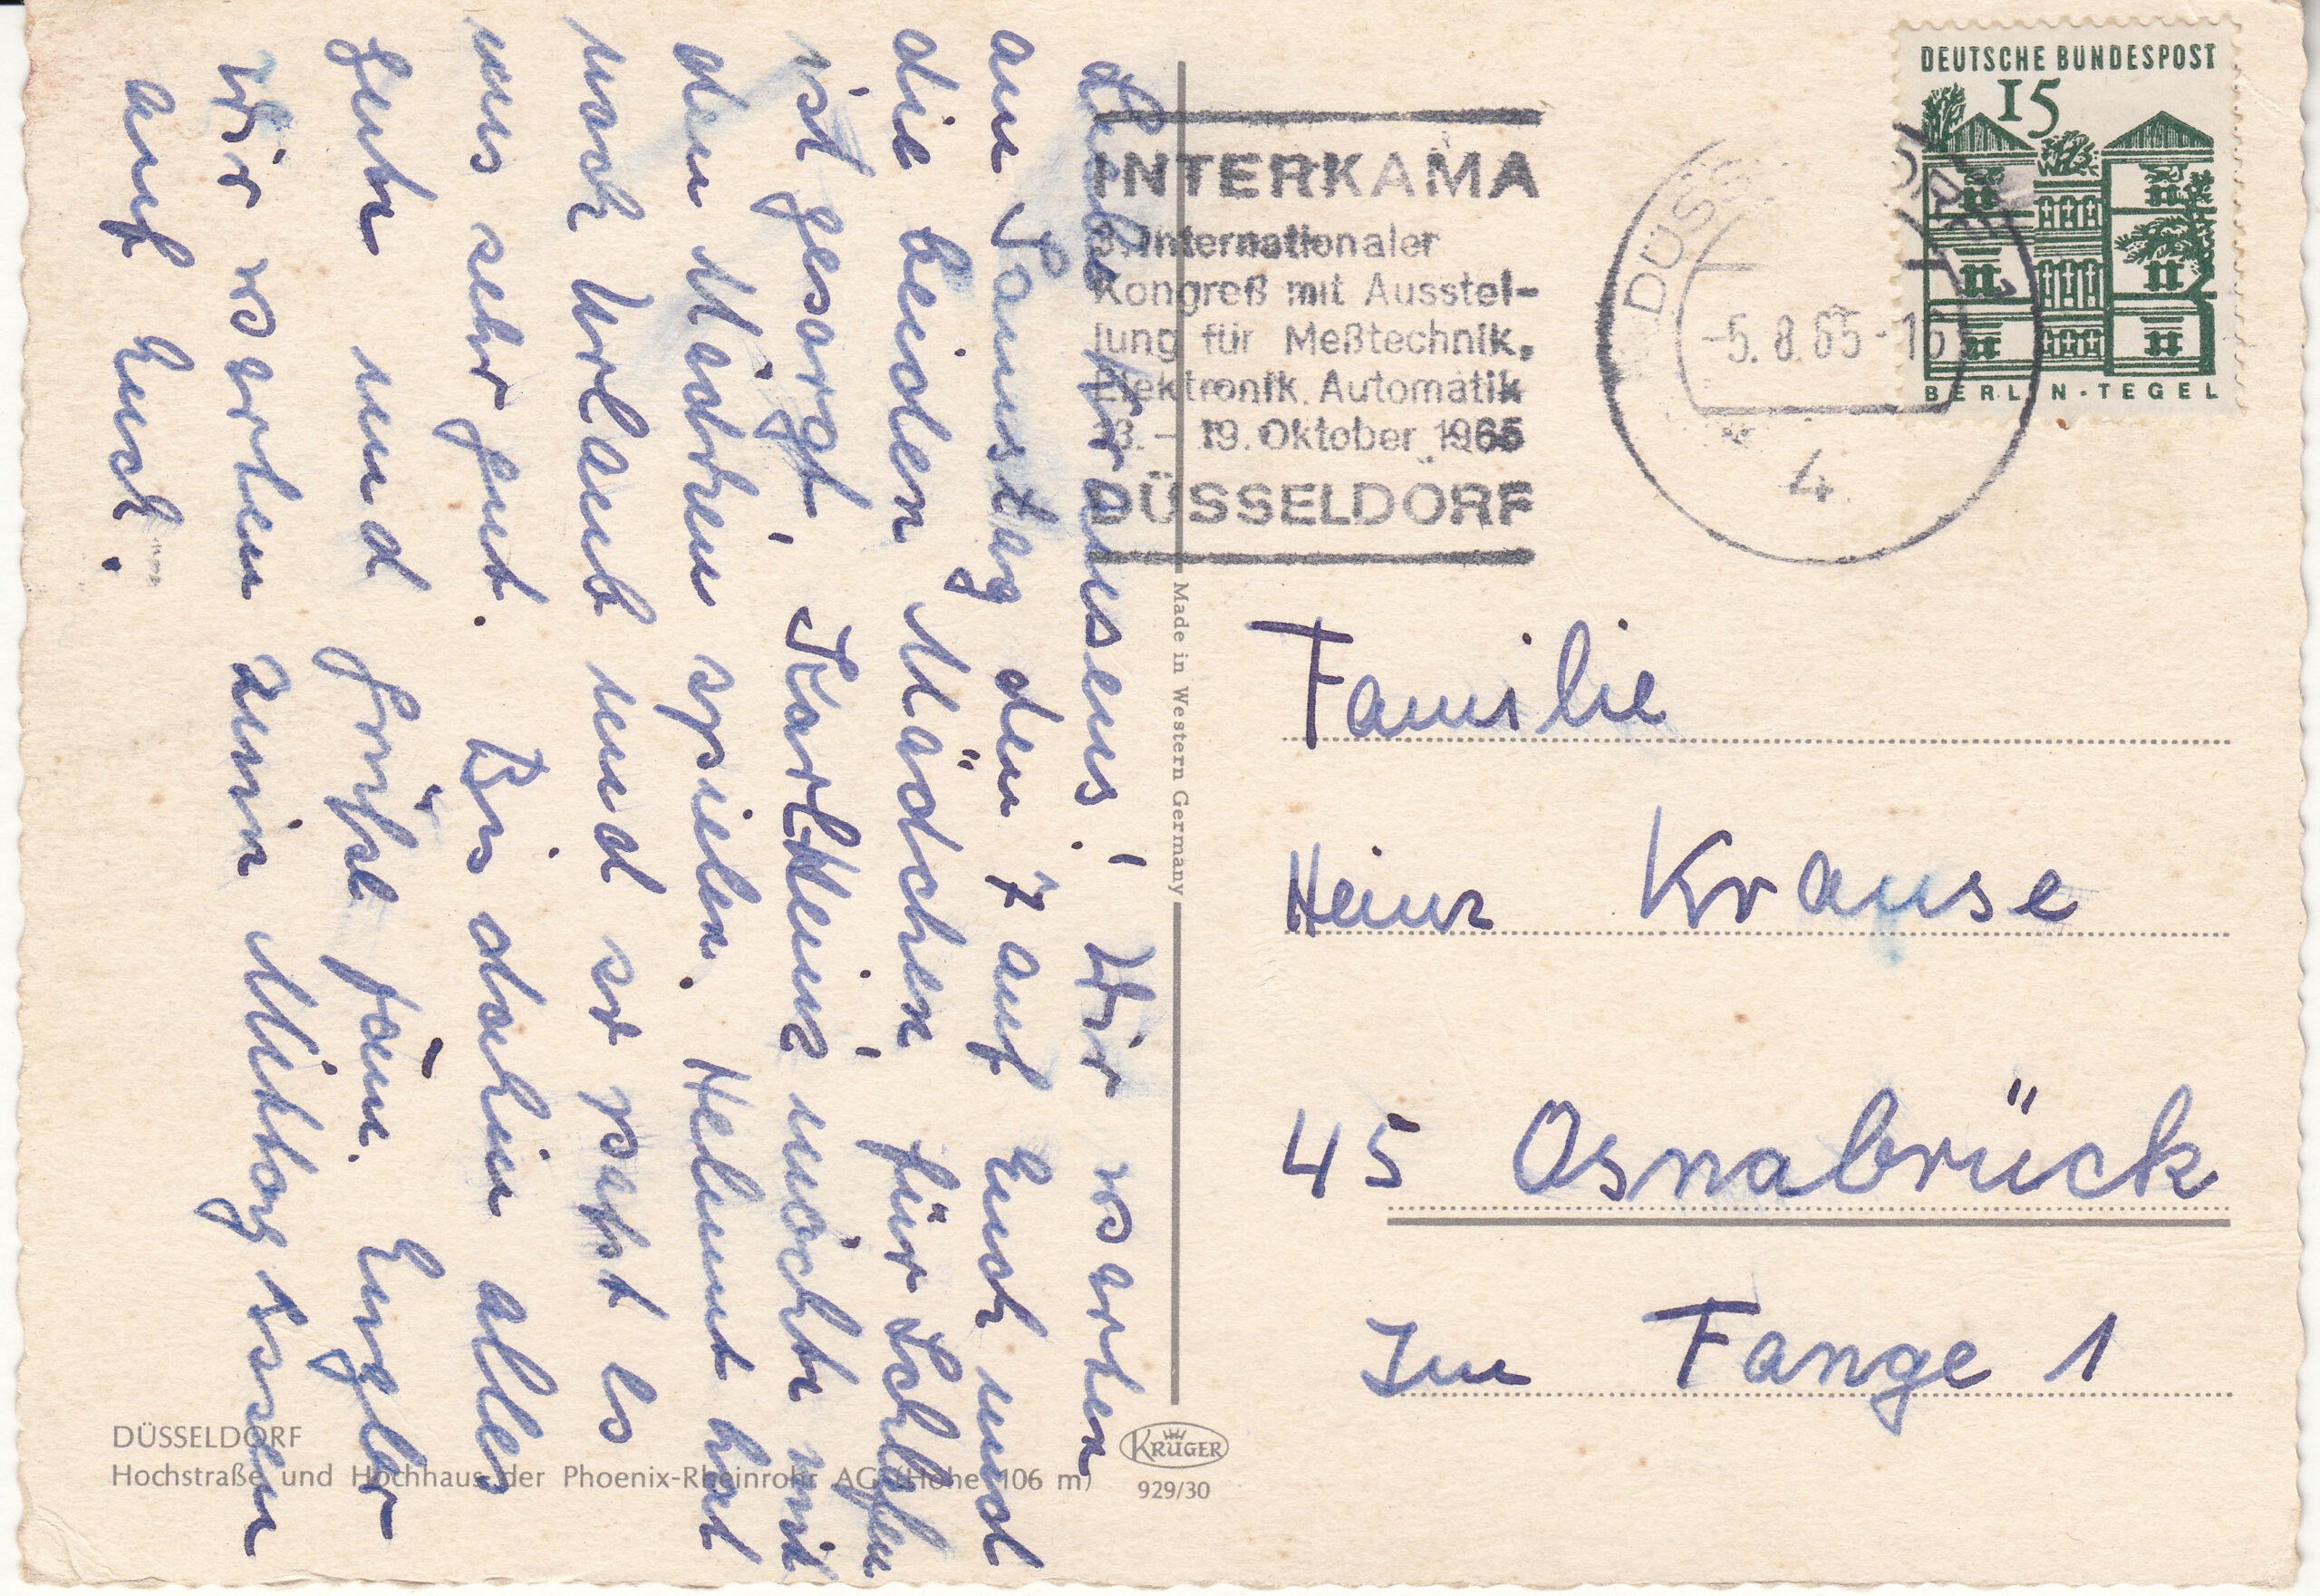 Liebe Krausens! Wir warten
am Samstag den 7 auf Euch und
die beiden Mädchen, für Schlafen
ist gesorgt, KarlHeinz möchte mit
den Mädchen spielen. Helmut hat
noch Urlaub und so paßt es
uns sehr gut. Bis dahin alles
Gute und Grüße fam. Engler
Wir warten zum Mittag essen
auf Euch.
INTERKAMA
3. Internationaler
Kongreß mit Ausstel-
lung für Meßtechnik,
Elektronik, Automatik
13. - 19. Oktober 1965
DÜSSELDORF
DÜSS
-5. 8. 65 - 16
4
DEUTSCHE BUNDESPOST
15
BERLIN-TEGEL
Made in Western Germany
Familie
Heinz Krause
45 Osnabrück
Im Fange 1
DÜSSELDORF
Hochstraße und Hochhaus der Phoenix-Rheinrohr AG (Höhe 106 m)
KRÜGER
929/30